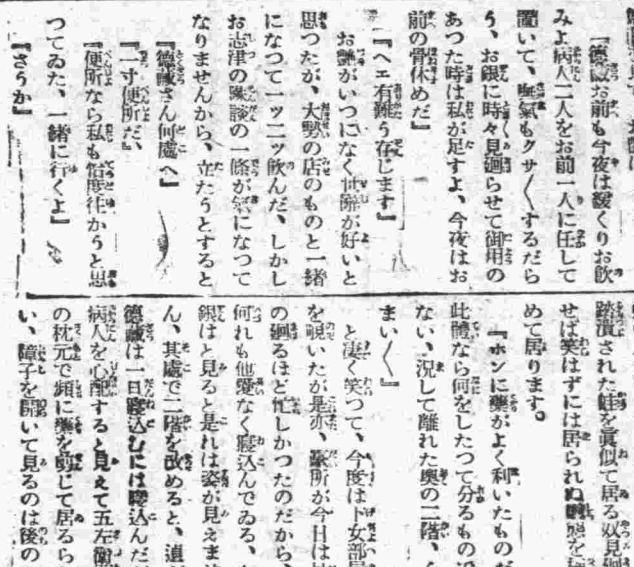 『德藏お前も今夜は緩くりお飮
みよ病人二人をお前一人に任して
置いて、嘸氣もクサ〱するだら
う、お銀に時々見廻らせて御用の
あつた時は私が足すよ、今夜はお
前の骨休めだ』
『ヘエ有難う存じます』
お艶がいつになく世辭が好いと
思つたが、大勢の店のものと一緖
になつて一ッ二ッ飮んだ、しかし
お志津の縁談の一條が氣になつて
なりませんから、立たうとすると
『德藏さん何處へ』
『一寸便所だ、
『便所なら私も恰度往かうと思
つてゐた、一緖に行くよ』
『さうか』
踏潰された蛙を眞似て居る奴見廻
せば笑はずには居られぬ醜態を
めて居ります。
『ホンに藥がよく利いたものだ
此體なら何をしたつて分るもの
ない、況して離れた奧の二階、
まい〱』
と凄く笑つて、今度は下女部屋
を覗いたが是亦、臺所が今日は
の廻るほど忙しかつたのだから、
何れも他愛なく寢込んでゐる、
銀はと見ると是れは姿が見えませ
ん、其處で二階を改めると、
德藏は一旦寢込むには寢込んだ
病人を心配すると見えて五左衞
の枕元で頻に藥を煎じて居るら
い、障子を開いて見るのは後の